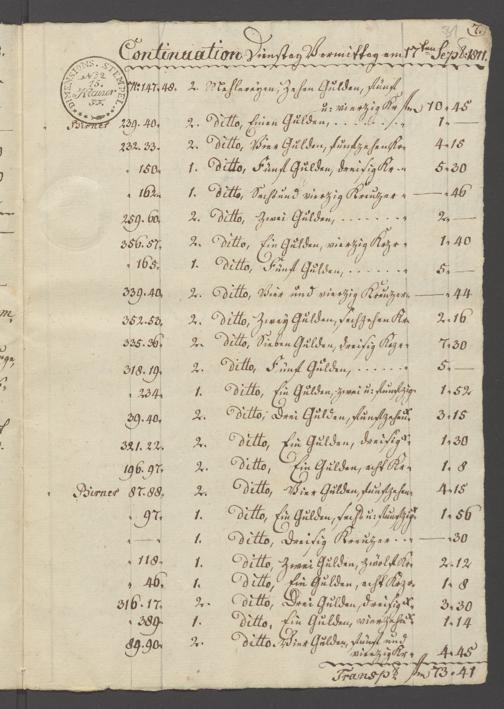 Continuation Dienstag Vormittag am 17ten Sept. 1811.
DIMENSIONS-STEMPEL
No. 147.48. 2. Mahlereyen, Zehen Gulden, fünf
u: vierzig Kr f 10.45
Birner 239.40. 2. ditto, Einen Gulden, 1.—
232.33. 2. ditto, Vier Gulden, fünfzehen Kr 4.15
150. 1. ditto, Fünf Gulden, dreisig Kr 5.30
162. 1. ditto, Sechs und vierzig Kreutzer —.46
259.60. 2. ditto, Zwei Gulden, 2.—
356.57. 2. ditto, Ein Gulden, vierzig Kr 1.40
165. 1. ditto, Fünf Gulden, 5.—
339.40. 2. ditto, Vier und vierzig Kreutzer —.44
352.53. 2. ditto, Zwey Gulden, sechzehen Kr 2.16
335.36. 2. ditto, Sieben Gulden, dreisig Kr 7.30
318.19. 2. ditto, Fünf Gulden, 5.—
234. 1. ditto, Ein Gulden, zwei u: fünfzig 1.52
39.40. 2. ditto, Drei Gulden, fünfzehen 3.15
321.22. 2. ditto, Ein Gulden, dreisig 1.30
196.97. 2. ditto, Ein Gulden, acht Kr 1.8
Birner 87.88. 2. ditto, Vier Gulden, fünfzehen 4.15
97. 1. ditto, Ein Gulden, sechs u: fünfzig 1.56
—.— 1. ditto, Dreisig Kreutzer —.30
118. 1. ditto, Zwei Gulden, zwölf Kr 2.12
46. 1. ditto, Ein Gulden, acht Kr 1.8
316.17. 2. ditto, Drei Gulden, dreisig 3.30
389. 1. ditto, Ein Gulden, vierzehen 1.14
89.90. 2. ditto. Vier Gulden, fünf und
vierzig Kr 4.45
Transpt f 73.41